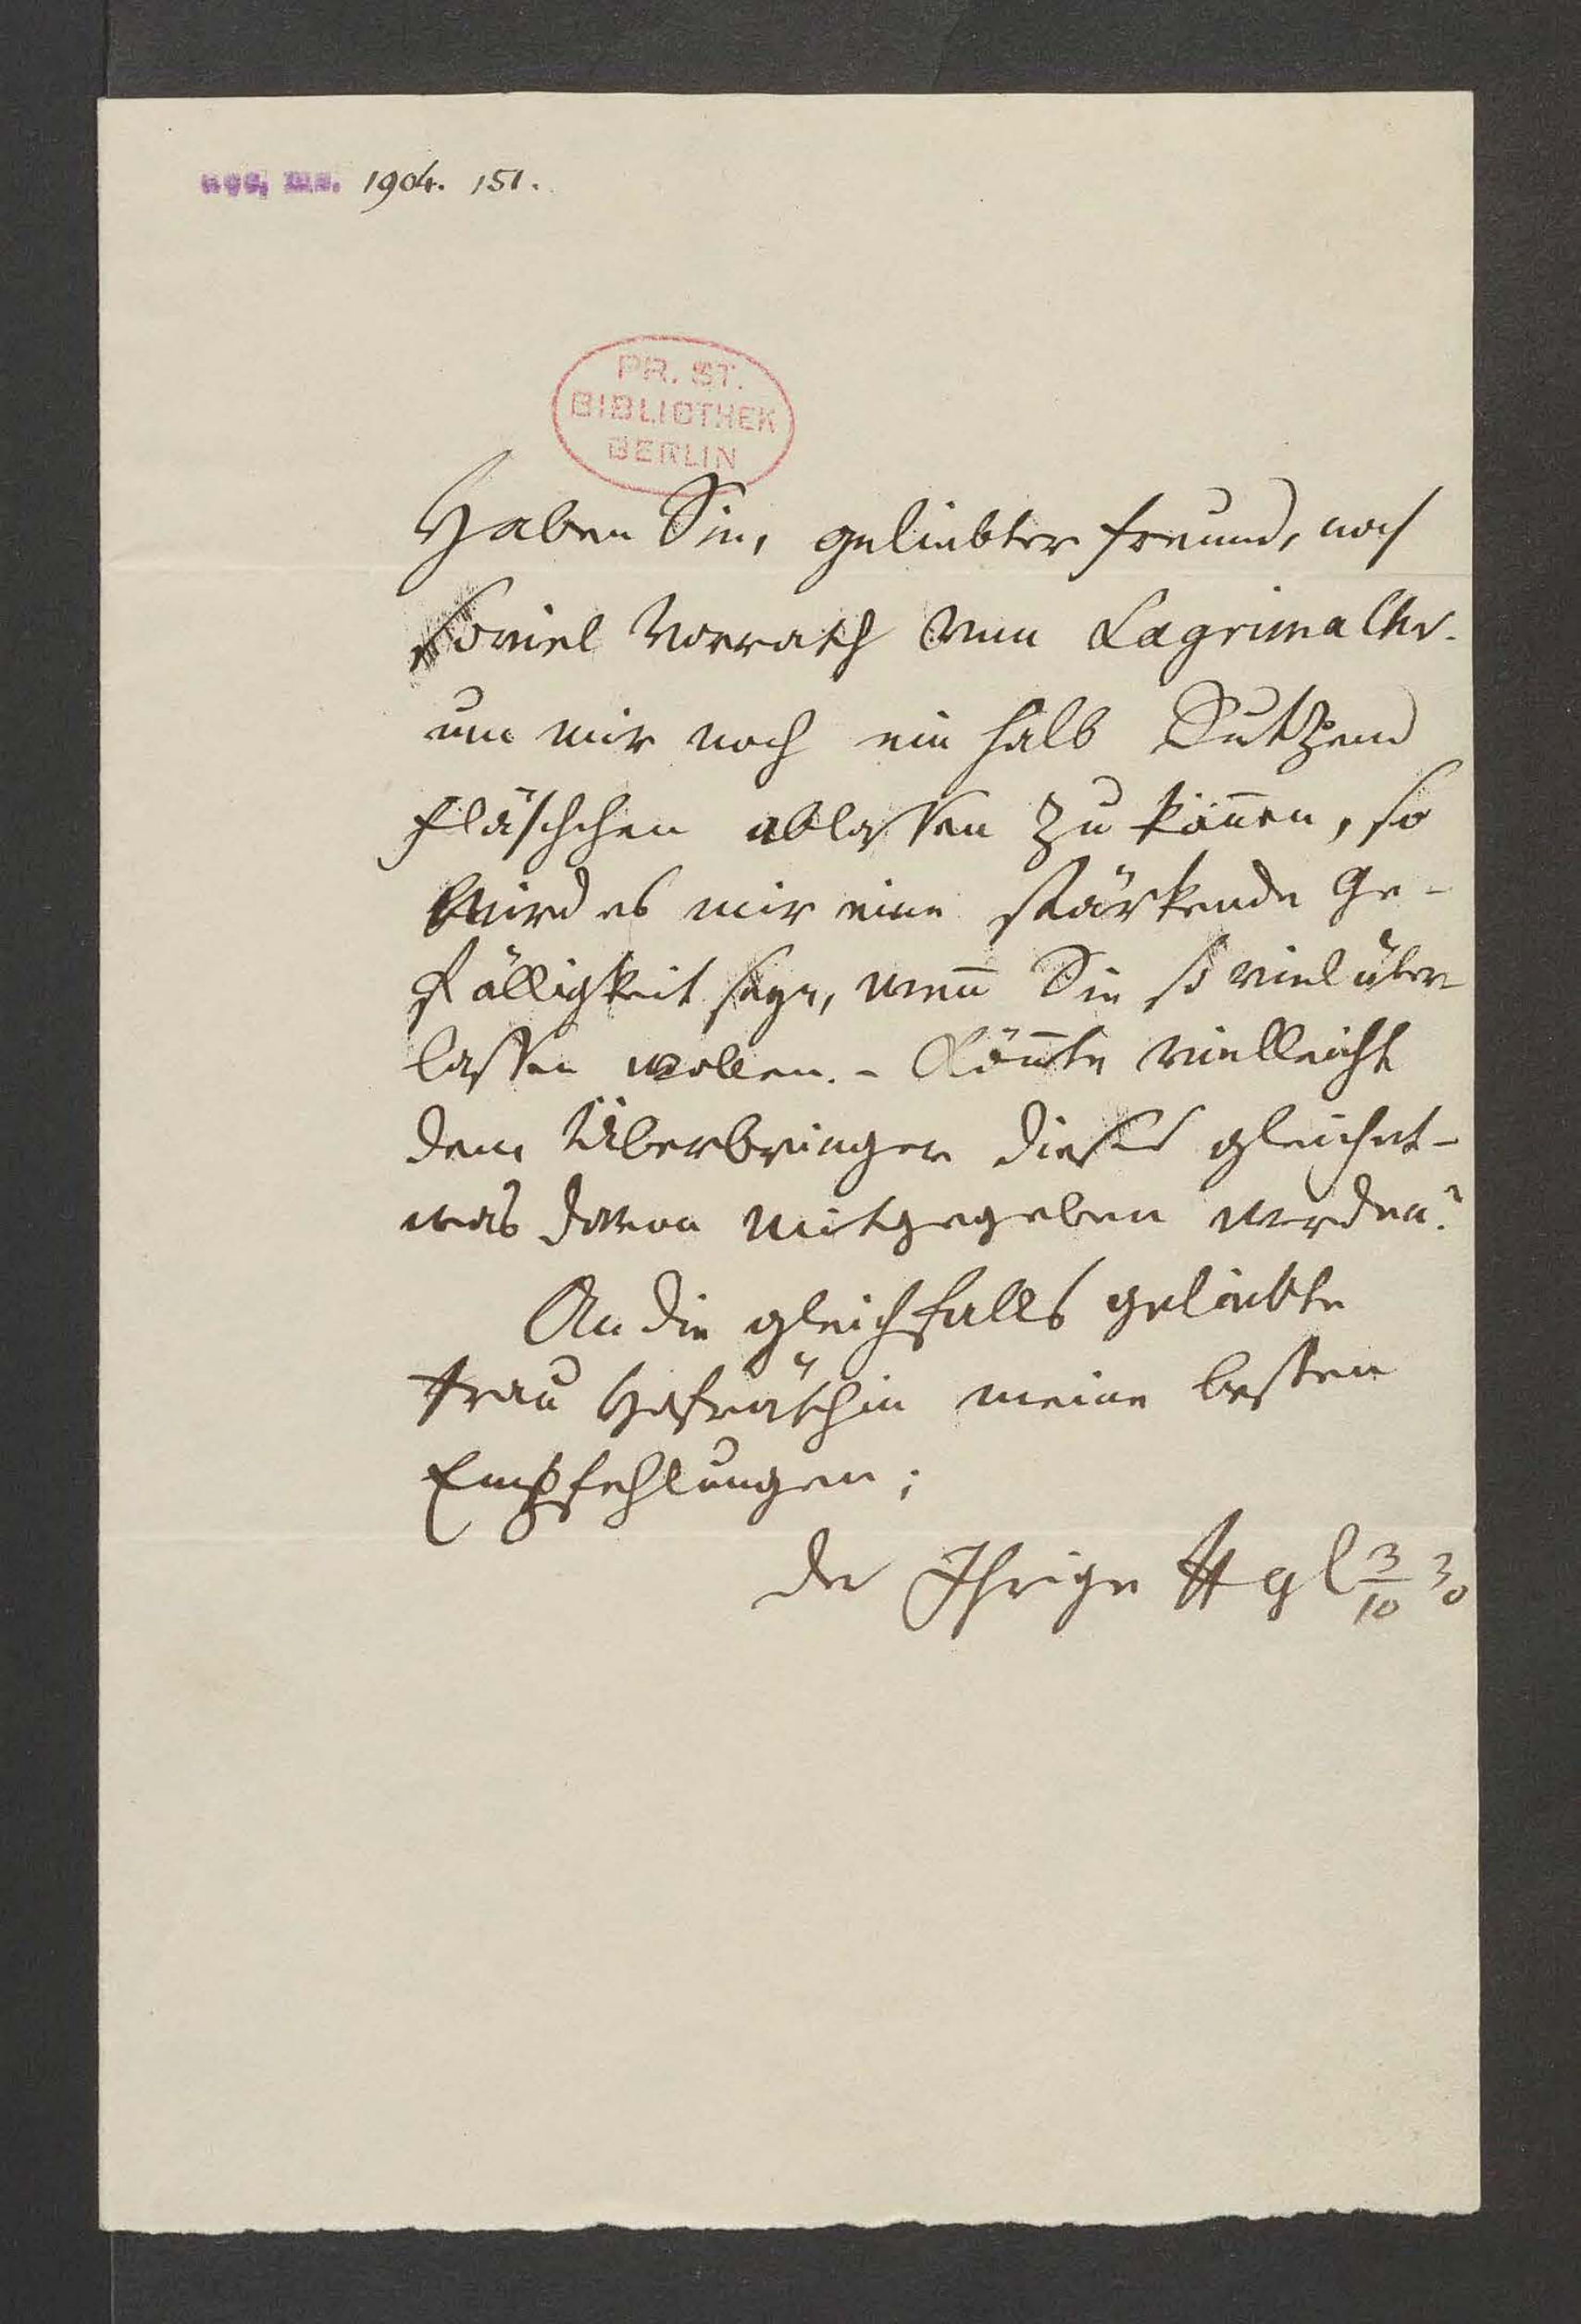 acc. ms. 1904. 151.
PR. ST.
BIBLIOTHEK
BERLIN
Haben Sie, geliebter Freund, noch
soviel Vorrath vom Lagrima Chr.
um mir noch ein halb Dutzend
Fläschchen ablassen zu können, so
wird es mir eine stärkende Ge-
fälligkeit seyn, wenn Sie so viel über-
lassen wollen. - Könnte vielleicht
dem Überbringer dieses gleich et-
was davon mitgegeben werden?
An die gleichfalls geliebte
Frau Hofräthin meine besten
Empfehlungen;
der Ihrige Hgl 3/10 30